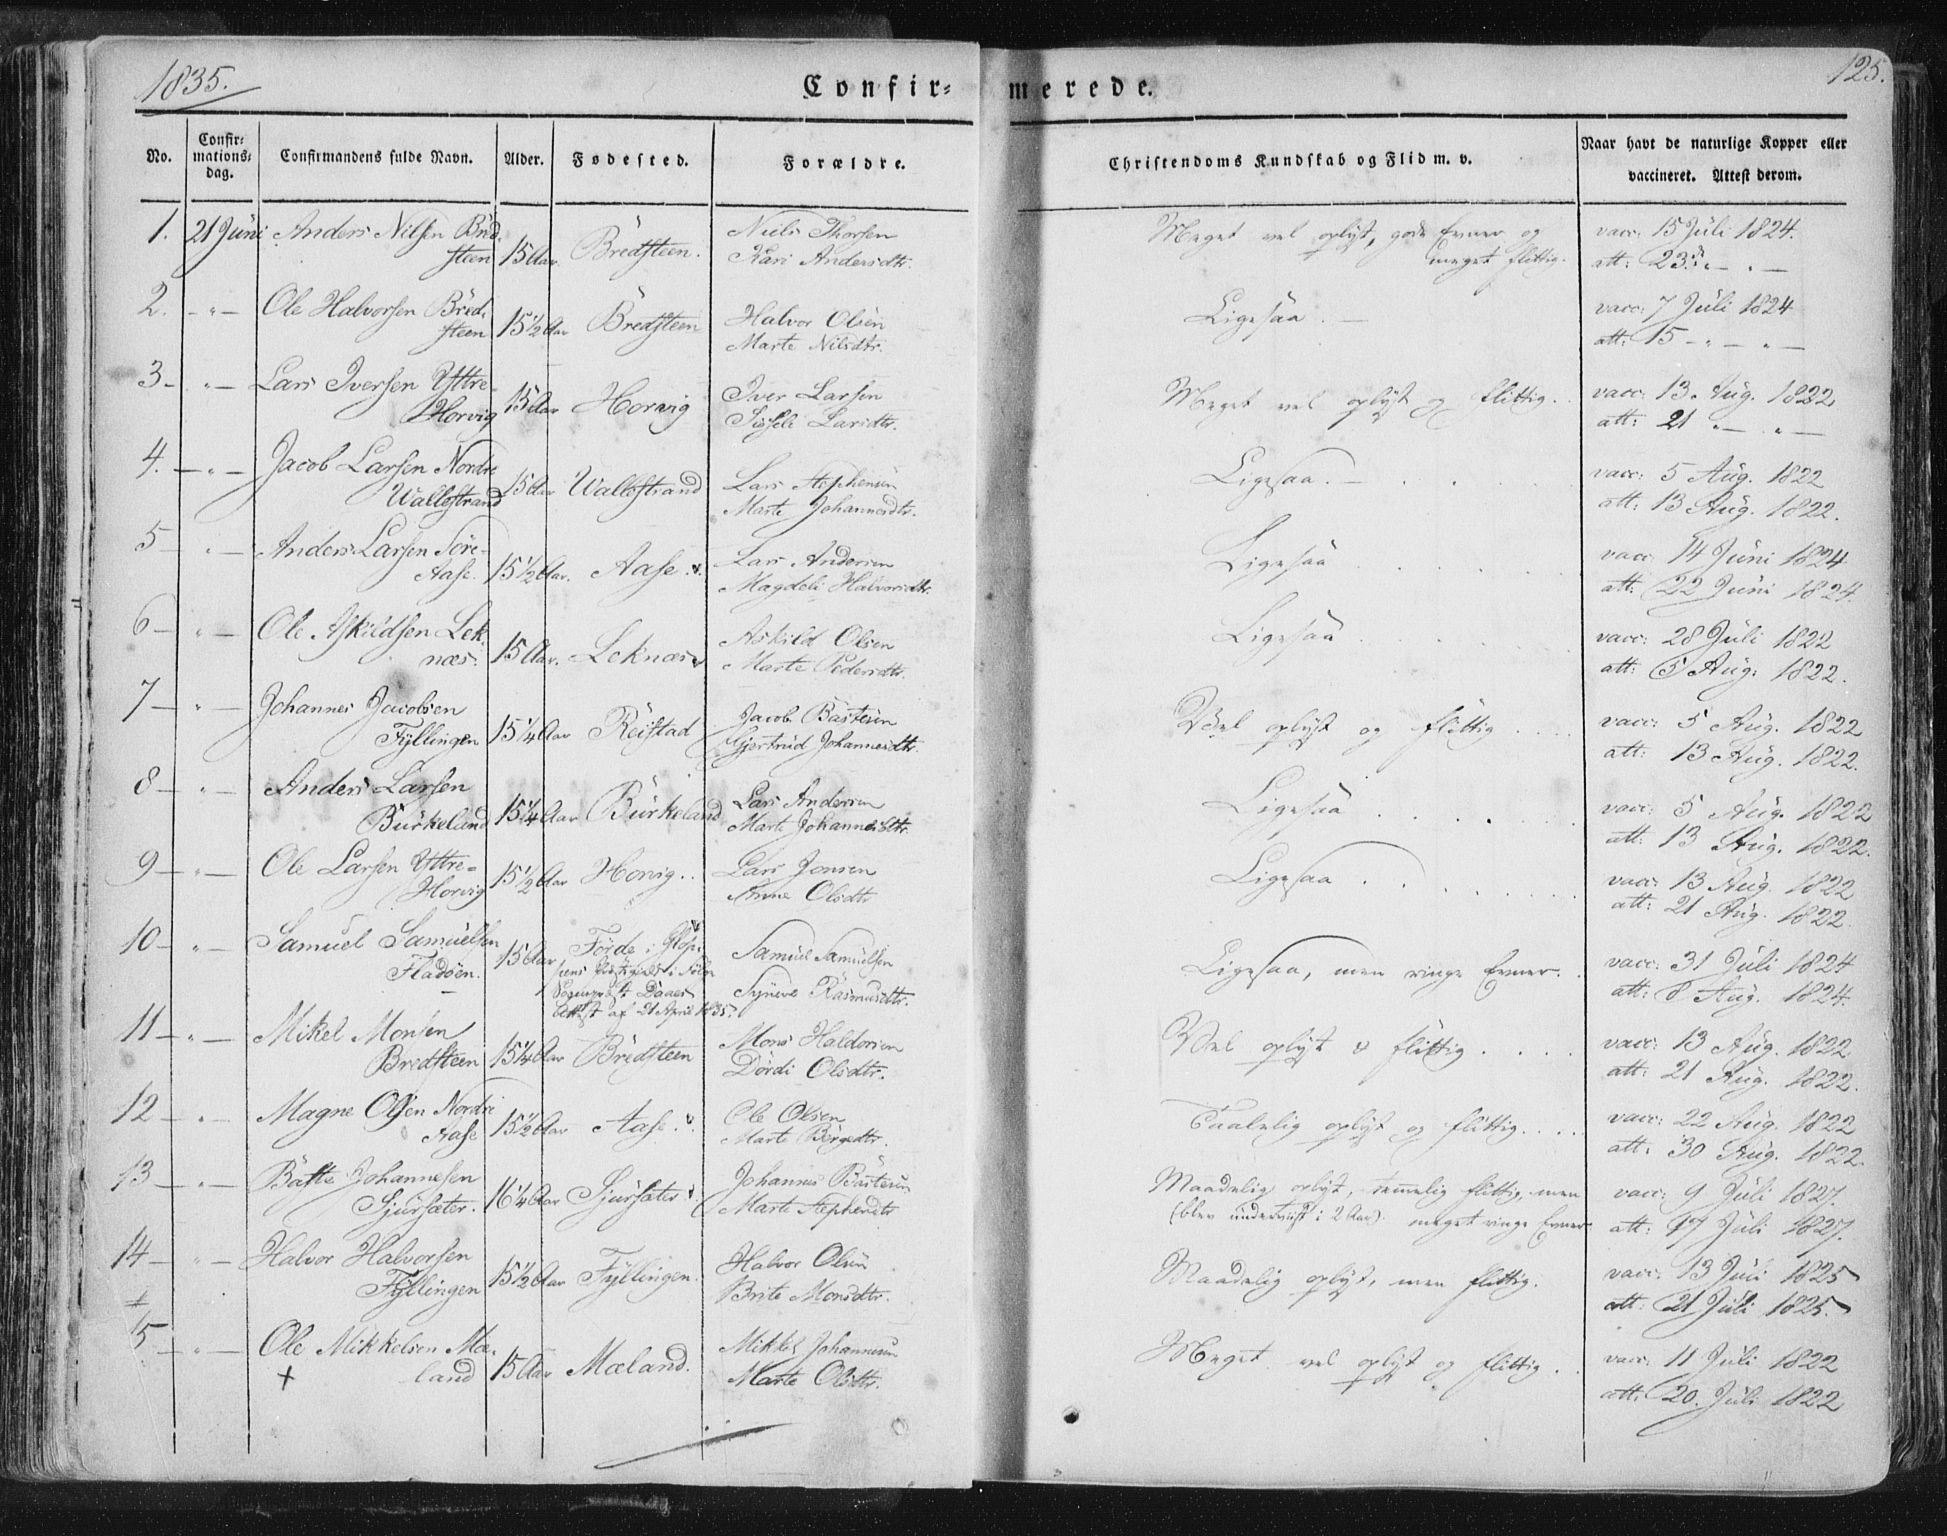 1835.
125.
Confir- merede.
No.
Confir-
mations-
dag.
Confirmandens fulde Navn.
Alder.
Fødested.
Forældre.
Christendoms Kundskab og Flid m. v.
Naar havt de naturlige Kopper eller
vaccineret. Attest derom.
1. 21 Juni Anders Nilsen Bred-
steen 15 Aar. Bredsteen. Niels Thorsen
Kari Andersdtr.
Meget vel oplyst, gode Evner og
meget flittig.
vacc: 15 Juli 1824.
att: 23. " — " —
2. — " — Ole Halvorsen Bred-
steen 15 1/2 Aar Bredsteen Halvor Olsen
Marte Nilsdtr.
Ligesaa. —
vacc: 7 Juli 1824
att: 15 — " — " —
3 — " — Lars Iversen Yttre-
Horvig 15 Aar Horvig Iver Larsen
Sissele Larsdtr.
Meget vel oplyst og flittig.
vacc: 13 Aug. 1822
att: 21 " — " —
4. — " — Jacob Larsen Nordre
Wallestrand 15 Aar Wallestrand Lars Stephensen
Marte Johannesdtr.
Ligesaa. —
vacc: 5 Aug. 1822
att: 13 Aug. 1822.
5 — " — Anders Larsen Søre-
Aase. 15 1/2 Aar. Aase. Lars Andersen
Magdeli Halvorsdtr.
Ligesaa
vacc: 14 Juni 1824
att: 22 Juni 1824.
6 — " — Ole Askildsen Lek-
næs. 15 Aar. Leknæs Askild Olsen
Marte Pedersdtr.
Ligesaa
vacc: 28 Juli 1822
att: 5 Aug. 1822.
7 — " — Johannes Jacobsen
Fyllingen 15 1/4 Aar Reistad Jacob Bastesen
Gjertrud Johannesdtr.
Vel oplyst og flittig
vacc: 5 Aug. 1822
att: 13 Aug. 1822.
8 — " — Anders Larsen
Burkeland 15 1/4 Aar Burkeland Lars Andersen
Marte Johannesdtr.
Ligesaa
vacc: 5 Aug. 1822
att: 13 Aug. 1822.
9 — " — Ole Larsen Yttre-
Horvig 15 1/2 Aar Horvig.. Lars Jonsen
Anne Olsdtr
Ligesaa
vacc: 13 Aug. 1822
att: 21 Aug. 1822.
10 — " — Samuel Samuelsen
Fladøen. 15 Aar Førde i
Attest af 21 April 1835. Samuel Samuelsen
Synneve Rasmusdtr.
Ligesaa, men ringe Evner.
vacc: 31 Juli 1824
att: 8 Aug. 1824.
11 — " — Mikel Monsen
Bredsteen 15 1/4 Aar Bredsteen Mons Haldorsen
Dørdi Olsdtr.
Vel oplyst & flittig
vacc: 13 Aug. 1822
att: 21 Aug. 1822.
12 — " — Magne Olsen Nordre
Aase 15 1/2 Aar Aase. Ole Olsen
Marte Børgedtr.
Taalelig oplyst og flittig
vacc: 22 Aug. 1822
att: 30 Aug. 1822.
13 — " — Baste Johannesen
Sjursæter. 16 1/4 Aar Sjursæter Johannes Bastesen
Marte Stephensdtr
Maadelig oplyst, temmelig flittig, men
(blev underviist i 2 Aar). meget ringe Evner
vacc: 9 Juli 1827.
att: 17 Juli 1827.
14 — " — Halvor Halvorsen
Fyllingen 15 1/2 Aar Fyllingen. Halvor Olsen
Brite Monsdtr.
Maadelig oplyst, men flittig.
vacc: 13 Juli 1825
att: 21 Juli 1825.
15 — " — Ole Mikkelsen Mæ-
land 15 Aar Mæland. Mikkel Johannesen
Marte Olsdtr.
Meget vel oplyst og flittig
vacc: 11 Juli 1822
att: 20. Juli 1822